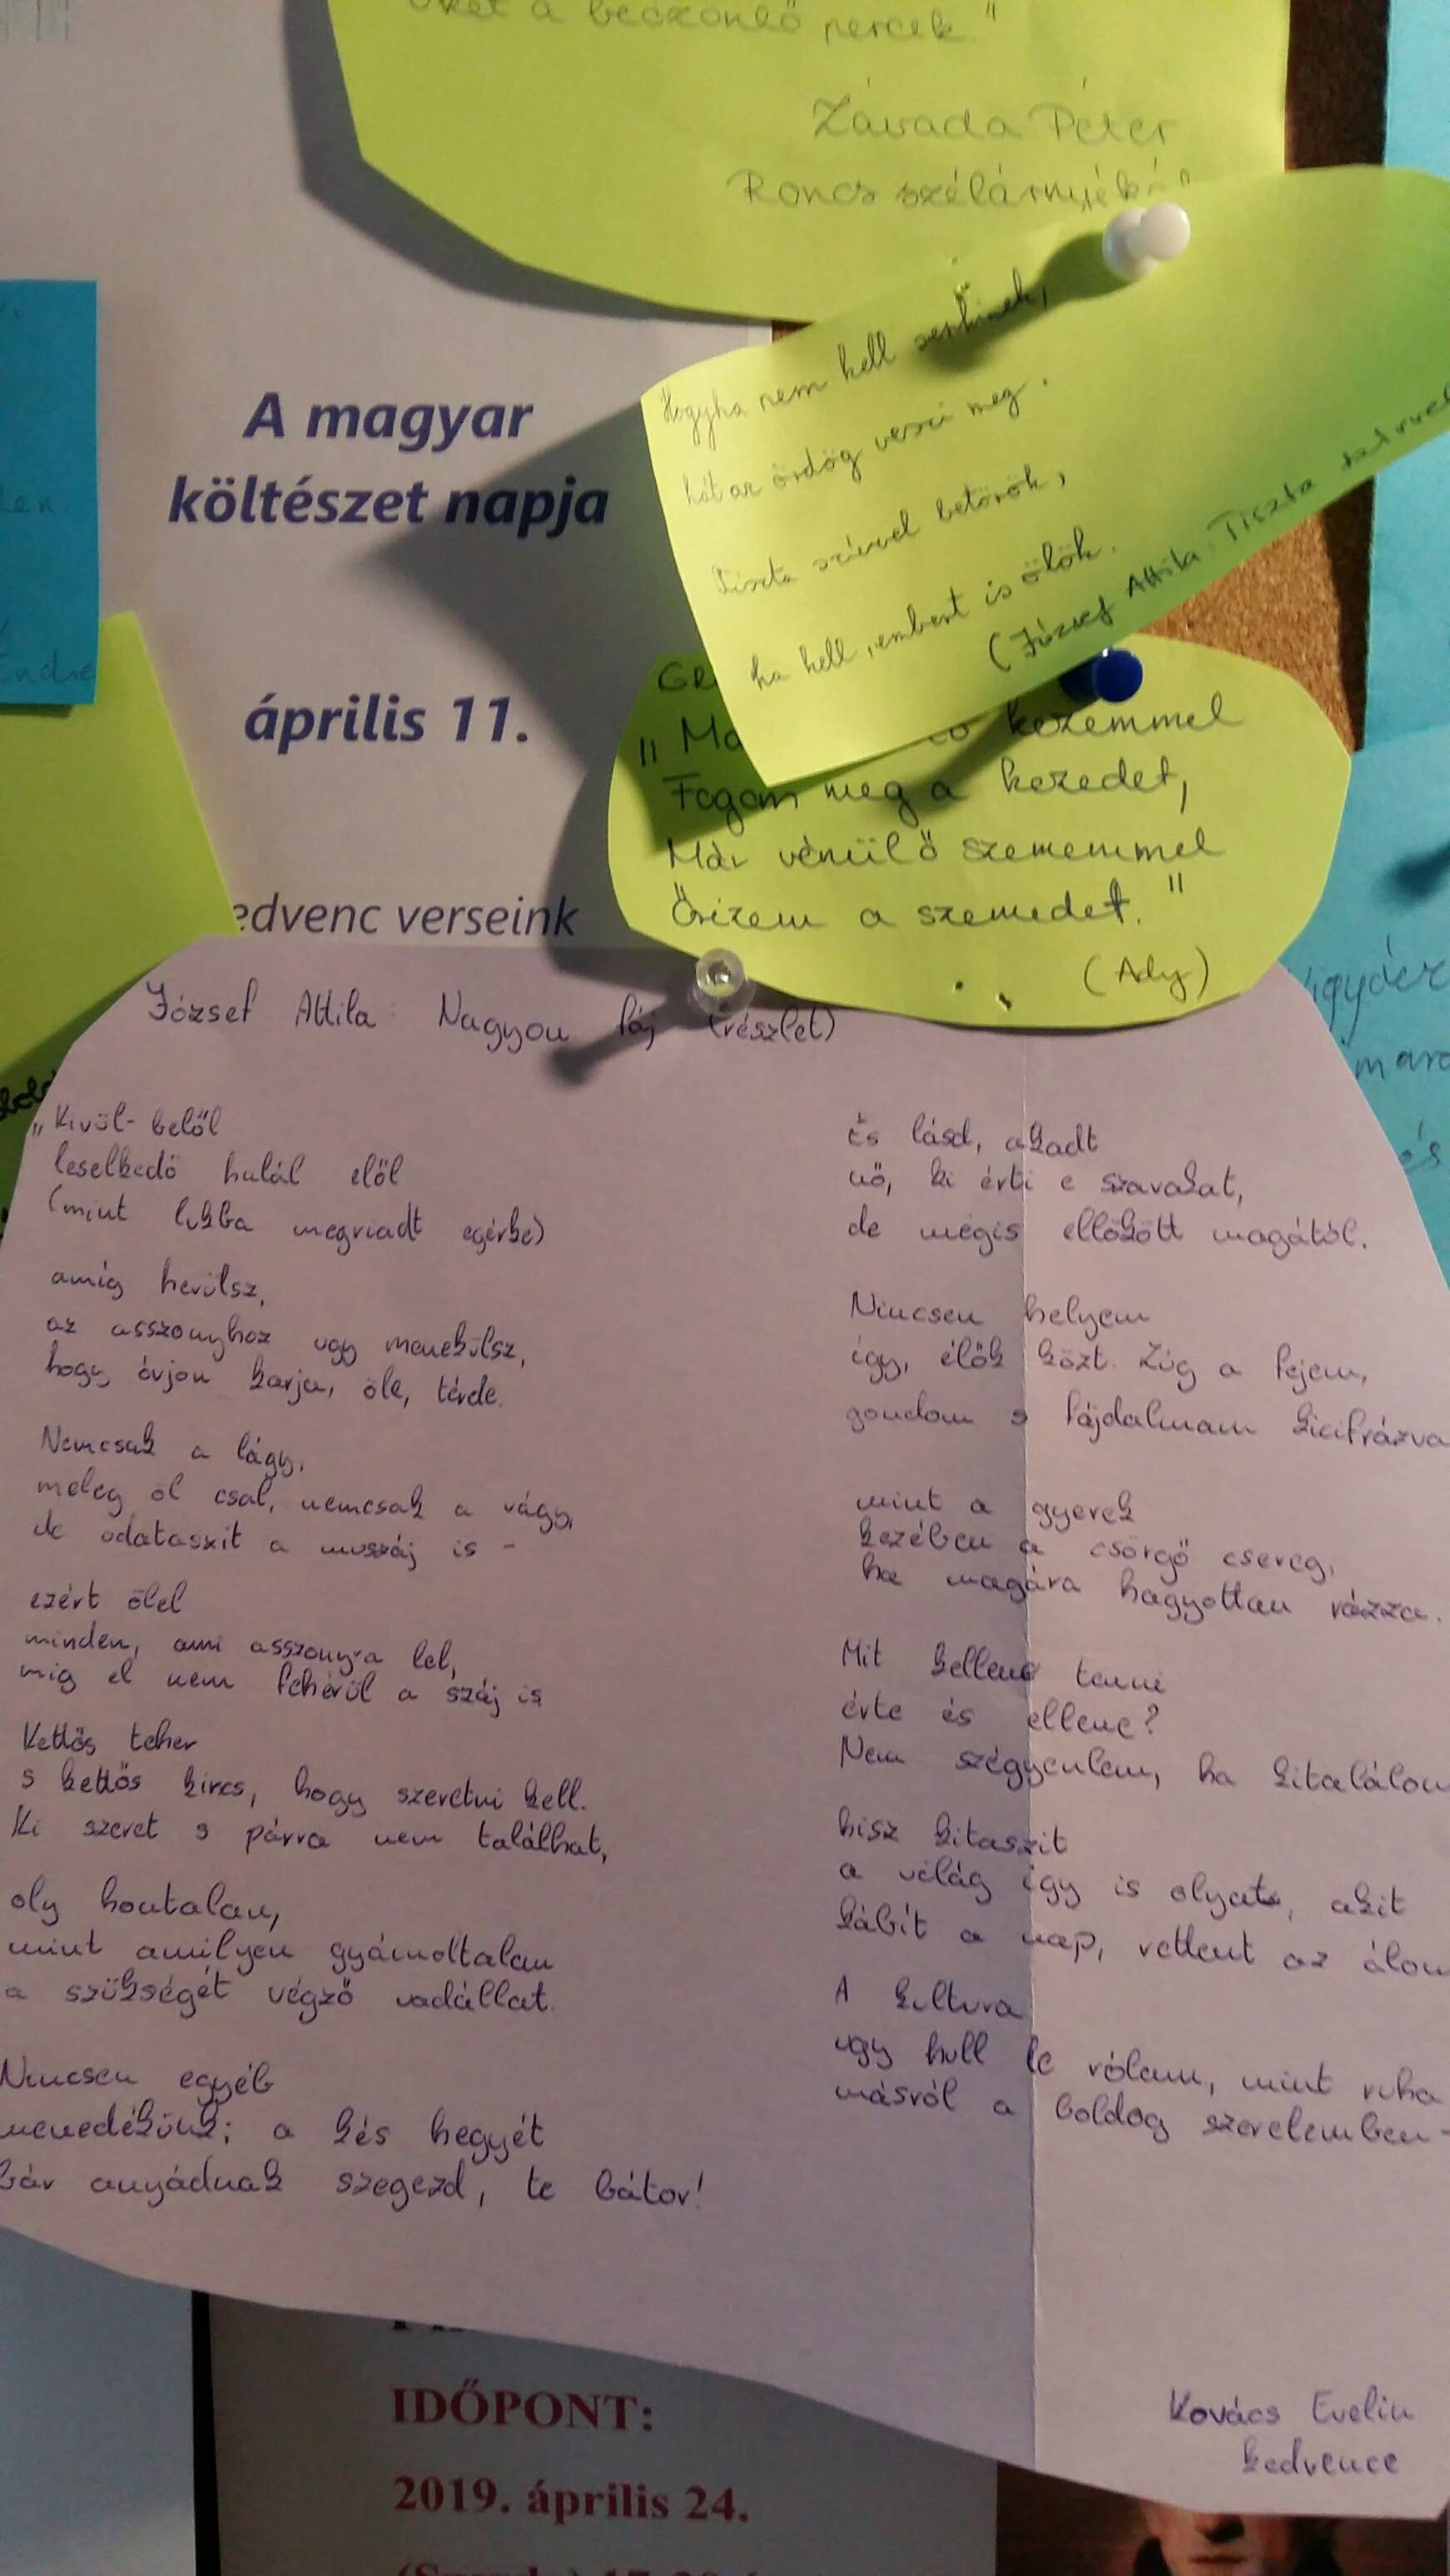 őket a beözönlő percek."
Závada Péter
Roncs szélárnyék
Endre
A magyar
költészet napja
április 11.
edvenc verseink
Hogyha nem kell senkinek,
hát az ördög veszi meg.
Tiszta szívvel betörök,
ha kell, embert is ölök.
(József Attila: Tiszta szívvel
„Má kezemmel
Fogom meg a kezedet,
Már vénülő szememmel
Őrizem a szemedet."
(Ady)
József Attila: Nagyon fáj (részlet)
„Kivül-belől
leselkedő halál elől
(mint lukba megriadt egérke)
amíg hevülsz,
az asszonyhoz ugy menekülsz,
hogy óvjon karja, öle, térde.
Nemcsak a lágy,
meleg öl csal, nemcsak a vágy,
de odataszit a muszáj is -
ezért ölel
minden, ami asszonyra lel,
mig el nem fehérül a száj is
Kettős teher
s kettős kincs, hogy szeretni kell.
Ki szeret s párra nem találhat,
oly hontalan,
mint amilyen gyámoltalan
a szükségét végző vadállat.
Nincsen egyéb
menedékünk; a kés hegyét
bár anyádnak szegezd, te bátor!
És lásd, akadt
nő, ki érti e szavakat,
de mégis ellökött magától.
Nincsen helyem
így, élők közt. Zúg a fejem,
gondom s fájdalmam kicifrázva
mint a gyerek
kezében a csörgő csereg,
ha magára hagyottan rázza.
Mit kellene tenni
érte és ellene?
Nem szégyenlem, ha kitalálom
hisz kitaszit
a világ így is olyat, akit
kábít a nap, rettent az álom
A kultura
ugy hull le rólam, mint ruha
másról a boldog szerelemben -
Kovács Evelin
kedvence
IDŐPONT:
2019. április 24.